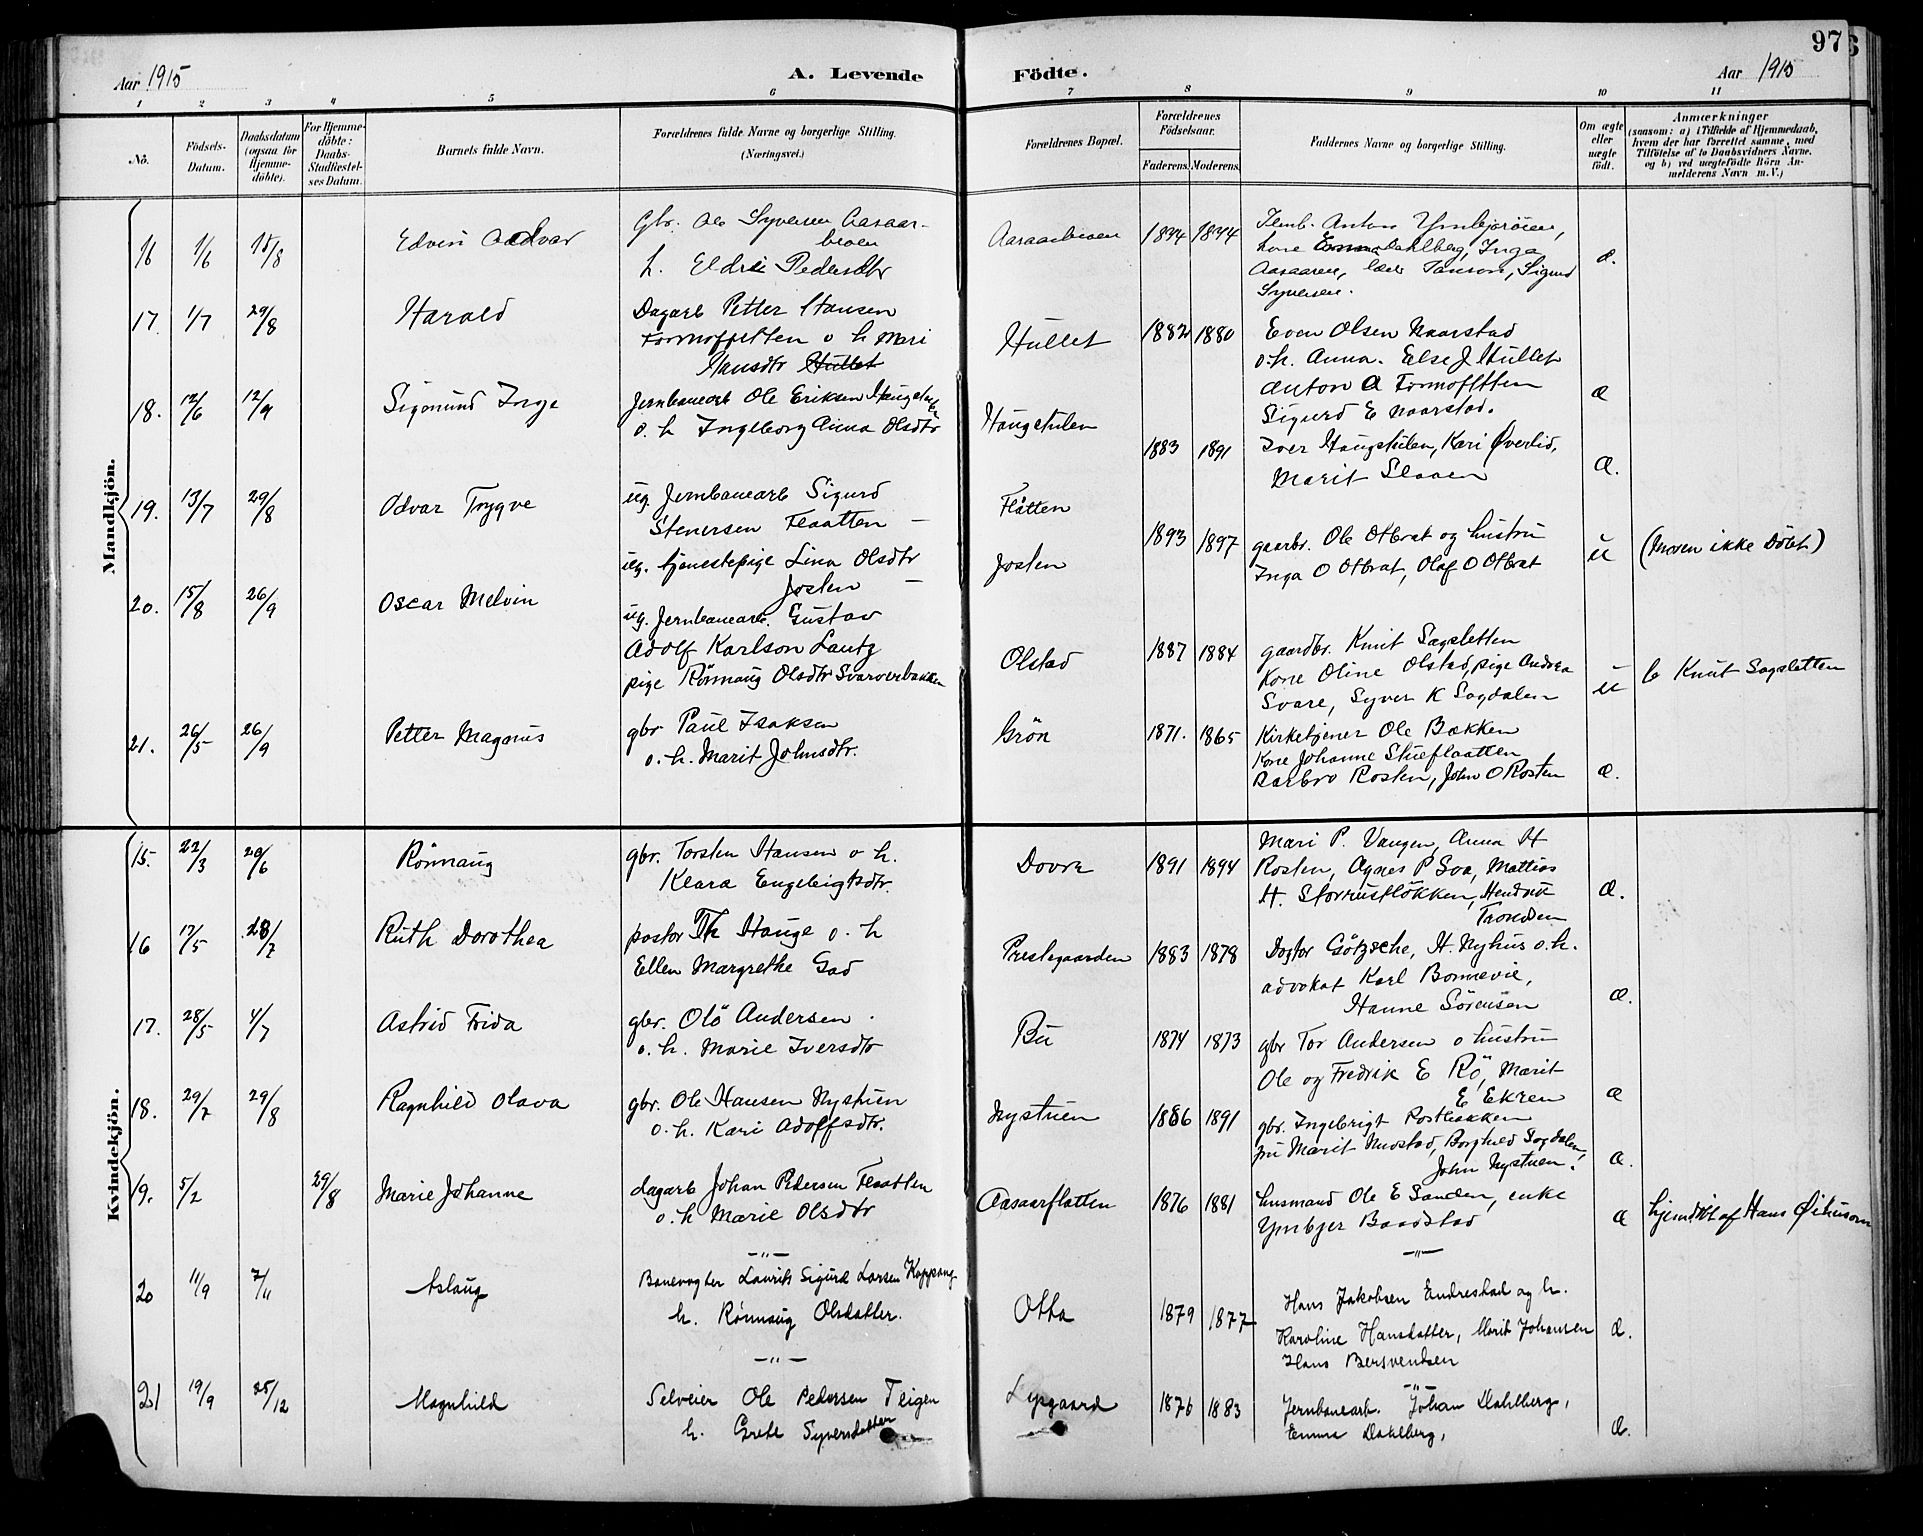 97
Aar 1915
A. Levende
Födte.
Aar 1915
1 2 3 4 5 6 7 8 9 10 11
No.
Födsels-
Datum.
Daabsdatum
(ogsaa for
Hjemme-
döbte).
For Hjemme-
döbte:
Daabs-
Stadfæstel-
ses Datum.
Barnets fulde Navn.
Forældrenes fulde Navne og borgerlige Stilling.
(Næringsvei.)
Forældrenes Bopæl.
Forældrenes
Födselsaar.
Faderens.
Moderens.
Faddernes Navne og borgerlige Stilling.
Om ægte
eller
uægte
født.
Anmærkninger
(saasom: a) i Tilfælde af Hjemmedaab,
hvem der har forrettet samme, med
Tilföielse af to Daabsvidners Navne.
og b) ved uægtefödte Börn An-
melderens Navn m. V.)
Mandkjön.
16 1/6 15/8 Edvin Oddvar
Gbr. Ole Syversen Aasaar-
broen
h. Eldri Pedersdtr
Aasaarbroen 1894
Anton Ymbjöröien,
kone Dahlberg, Inga
Aasaaren, Sigurd
Syversen.
æ.
17. 1/7 29/8 Harald
Dagarb Petter Hansen
Formofletten o h Mari
Hansdtr Hullet
Hullet 1882 1880
Even Olsen Naarstad
o.h. Anna. Else J Hullet
Anton A
Sigurd E Naarstad.
æ
18. 12/6 12/9 Sigmund Inge
Jernbanearb Ole Eriksen
o. h Ingeborg Anna Olsdtr
Haugstulen 1883 1891
Iver Haugstulen, Kari Øverlid,
Marit Slaaen
æ.
19. 13/7 29/8 Odvar Trygve
ug. Jernbanearb Sigurd
Stenersen Flaatten —
ug. tjenestepige Lina Olsdtr
Josten —
Flåtten
Josten
1893 1897
gaarbr. Ole Otbrat og hustru
Inga O Otbrat, Olaf O Otbrat
u (Moren ikke Döbt)
20. 15/8 26/9 Oscar Melvin
ug. Jernbanearb. Gustav
Adolf Karlson Lantz
pige Rönnaug Olsdtr Svarverbakken
Olstad 1887 1884
gaardbr. Knut Sagsletten
Kone Oline Olstad, pige Andrea
Svare, Syver K Sagdalen
u
b Knut Sagsletten
21. 26/5 26/9 Petter Magnus
gbr Paul Isaksen
o. h. Marit Johnsdtr.
Grön 1871. 1865
Kirketjener Ole Bakken
Kone Johanne Stueflaatten
Barbro Rosten, John O Rosten
æ.
Kvindekjön.
15. 22/3 20/6 Rönnaug
gbr. Torsten Hansen o h.
Klara Engebrigtsdtr.
Dovre 1891 1894
Mari P. Vangen, Anna H
Rosten, Agnes P Sva, Mattias
H. Storrustlökken, Hendrik
Trondsen
æ.
16 17/5 28/7 Ruth Dorothea
pastor Th Hauge o. h
Ellen Margrethe Gad
Prestegaarden 1883 1878
Dogtor Götzsche, H. Nyhus o.h.
advokat Karl Bonnevie,
Hanne Sörensen
æ.
17. 28/5 4/7 Astrid Frida
gbr. Olö Andersen
o. h. Marie Iversdtr
Bu 1874 1873
gbr Tor Andersen o hustru
Ole og Fredrik E Rö, Marit
E Ekren
æ
18. 29/7 29/8 Ragnhild Olava
gbr. Ole Hansen Nystuen
o. h. Kari Adolfsdtr.
Nystuen 1886 1891
gbr. Ingebrigt Rostbakken
fru Marit Nustad, Borghild Sagdalen,
John Nystuen.
æ.
19. 5/2 29/8 Marie Johanne
dagarb Johan Pedersen Flaatten
o. h Marie Olsdtr
Aasaarflatten 1876 1881
husmand Ole E Sanden, enke
Ymbjer Baadstad
æ
hjemdöbt af Hans
—"—
20 11/9 7/11 Aslaug
Banevogter Laurits Sigurd Larsen Koppang
h. Rönnaug Olsdatter.
Otta 1879 1877
—"—
Hans Jakobsen Endrestad og h.
Karoline Hansdatter, Marit Johansen
Hans Bersvendsen
æ.
—"—
21 19/9 25/12 Magnhild
Selveier Ole Pedersen Teigen
h. Grete Syversdatter
Lyngaard 1876 1883
—"—
Jernbanearb. Johan Dahlberg,
Emma Dahlberg,
æ.